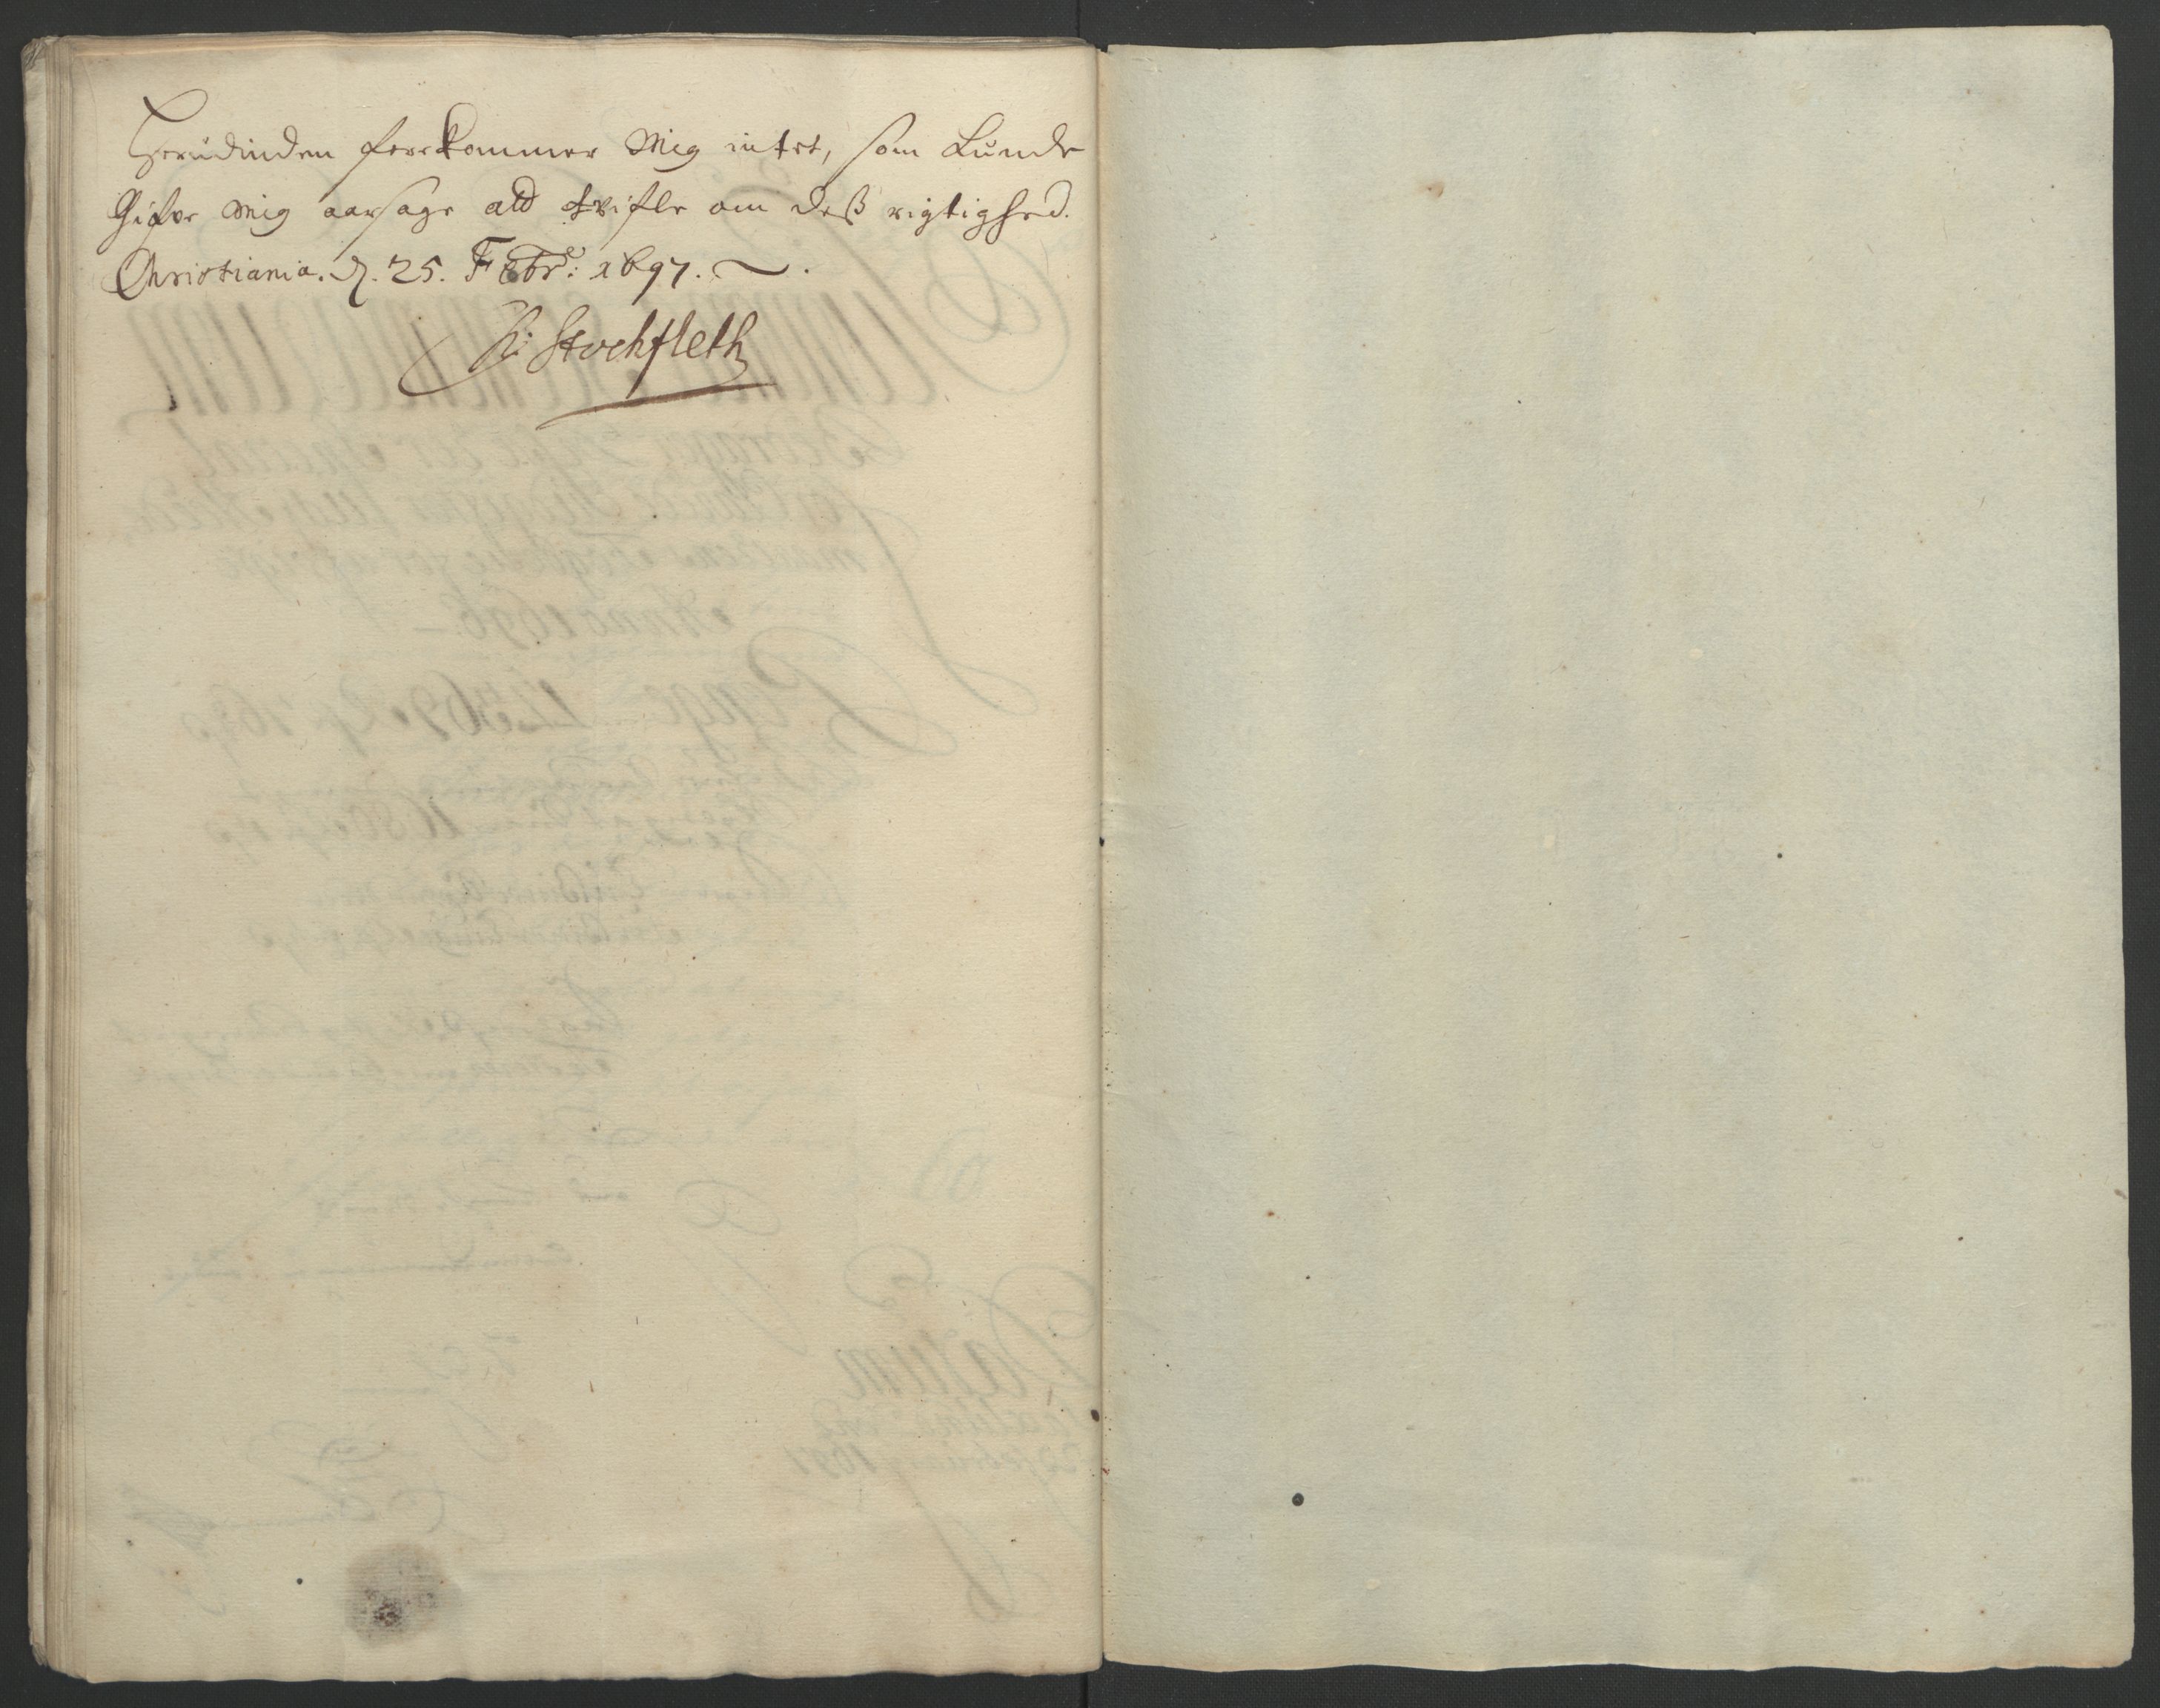 Herudinden forrekommer Mig intet, som kunde
Gifve Mig aarsage att tvifle om deß rigtighed.
Christiania. d. 25. Febr: 1697.
H: Stockfleth